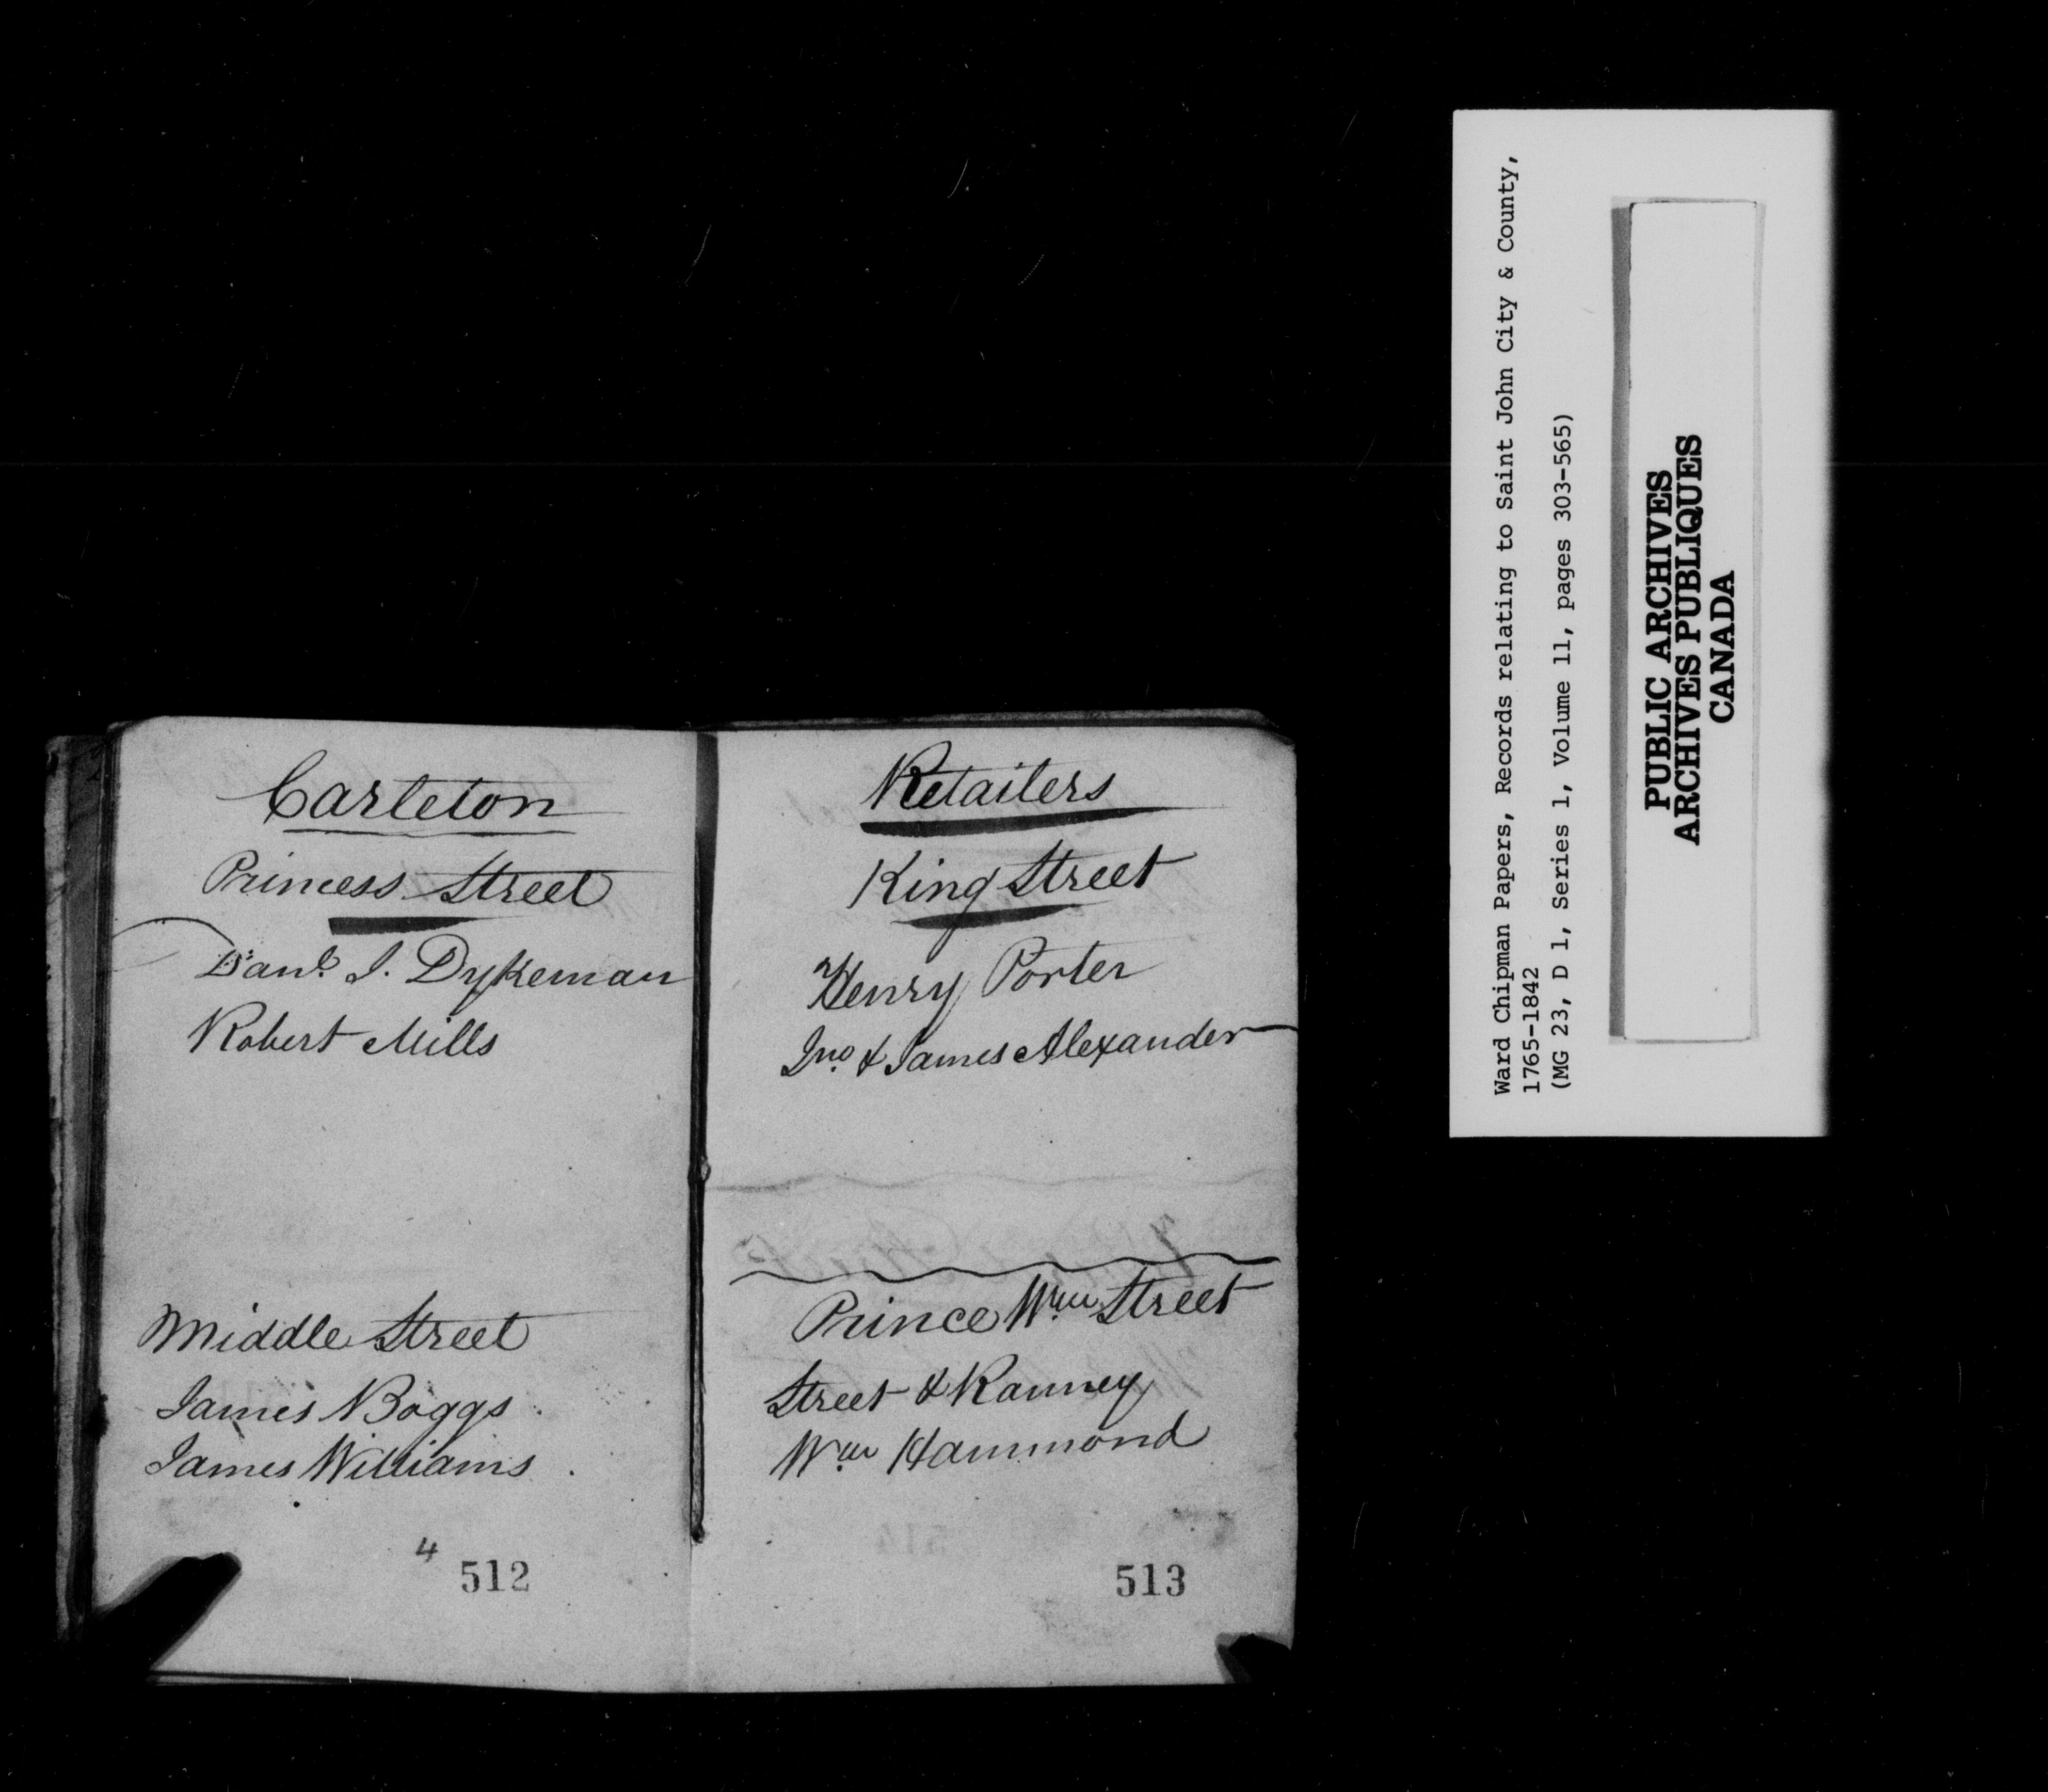 Carleton
Princess Street
Danl. J. Dykeman
Robert Mills
Middle Street
James Boggs
James Williams
4
512
Retailers
King Street
Henry Porter
Jno. & James Alexander
Prince Wm. Street
Street & Ranney
Wm. Hammond
513
Ward Chipman Papers, Records relating to Saint John City & County,
1765-1842
(MG 23, D 1, Series 1, Volume 11, pages 303-565)
PUBLIC ARCHIVES
ARCHIVES PUBLIQUES
CANADA